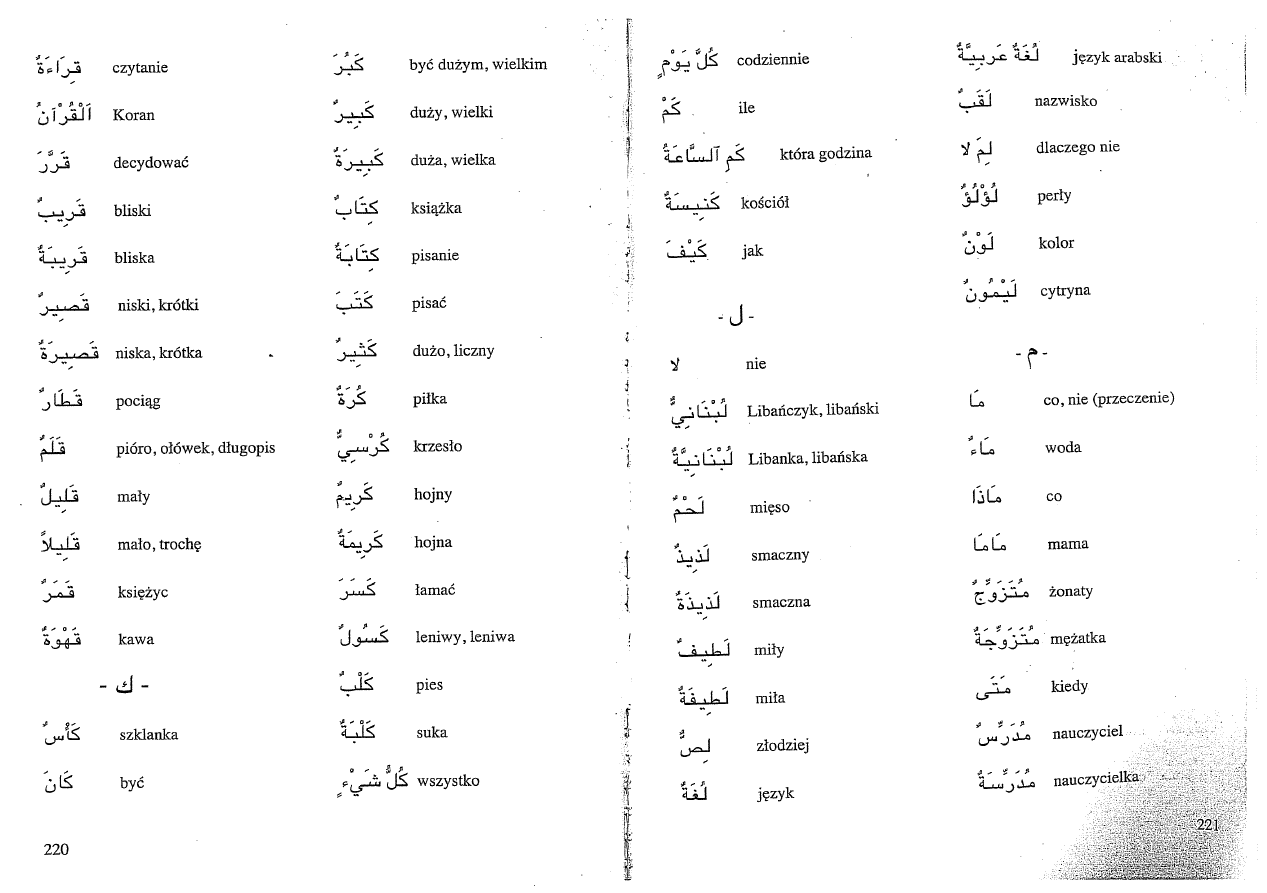 قِرَاءَةٌ czytanie
اَلْقُرْآنُ Koran
قَرَّرَ decydować
قَرِيبٌ bliski
قَرِيبَةٌ bliska
قَصِيرٌ niski, krótki
قَصِيرَةٌ niska, krótka
قِطَارٌ pociąg
قَلَمٌ pióro, ołówek, długopis
قَلِيلٌ mały
قَلِيلاً mało, trochę
قَمَرٌ księżyc
قَهْوَةٌ kawa
- ك -
كَأْسٌ szklanka
كَانَ być
كَبُرَ być dużym, wielkim
كَبِيرٌ duży, wielki
كَبِيرَةٌ duża, wielka
كِتَابٌ książka
كِتَابَةٌ pisanie
كَتَبَ pisać
كَثِيرٌ dużo, liczny
كُرَةٌ piłka
كُرْسِيٌّ krzesło
كَرِيمٌ hojny
كَرِيمَةٌ hojna
كَسَرَ łamać
كَسُولٌ leniwy, leniwa
كَلْبٌ pies
كَلْبَةٌ suka
كُلُّ شَيْءٍ wszystko
220
كُلَّ يَوْمٍ codziennie
كَمْ ile
كَمِ ٱلسَّاعَةُ która godzina
كَنِيسَةٌ kościół
كَيْفَ jak
- ل -
لا nie
لُبْنَانِيٌّ Libańczyk, libański
لُبْنَانِيَّةٌ Libanka, libańska
لَحْمٌ mięso
لَذِيذٌ smaczny
لَذِيذَةٌ smaczna
لَطِيفٌ miły
لَطِيفَةٌ miła
لِصٌّ złodziej
لُغَةٌ język
لُغَةٌ عَرَبِيَّةٌ język arabski
لَقَبٌ nazwisko
لِمَ لا dlaczego nie
لُؤْلُؤٌ perły
لَوْنٌ kolor
لَيْمُونٌ cytryna
- م -
مَا co, nie (przeczenie)
مَاءٌ woda
مَاذَا co
مَامَا mama
مُتَزَوِّجٌ żonaty
مُتَزَوِّجَةٌ mężatka
مَتَى kiedy
مُدَرِّسٌ nauczyciel
مُدَرِّسَةٌ nauczycielka
221